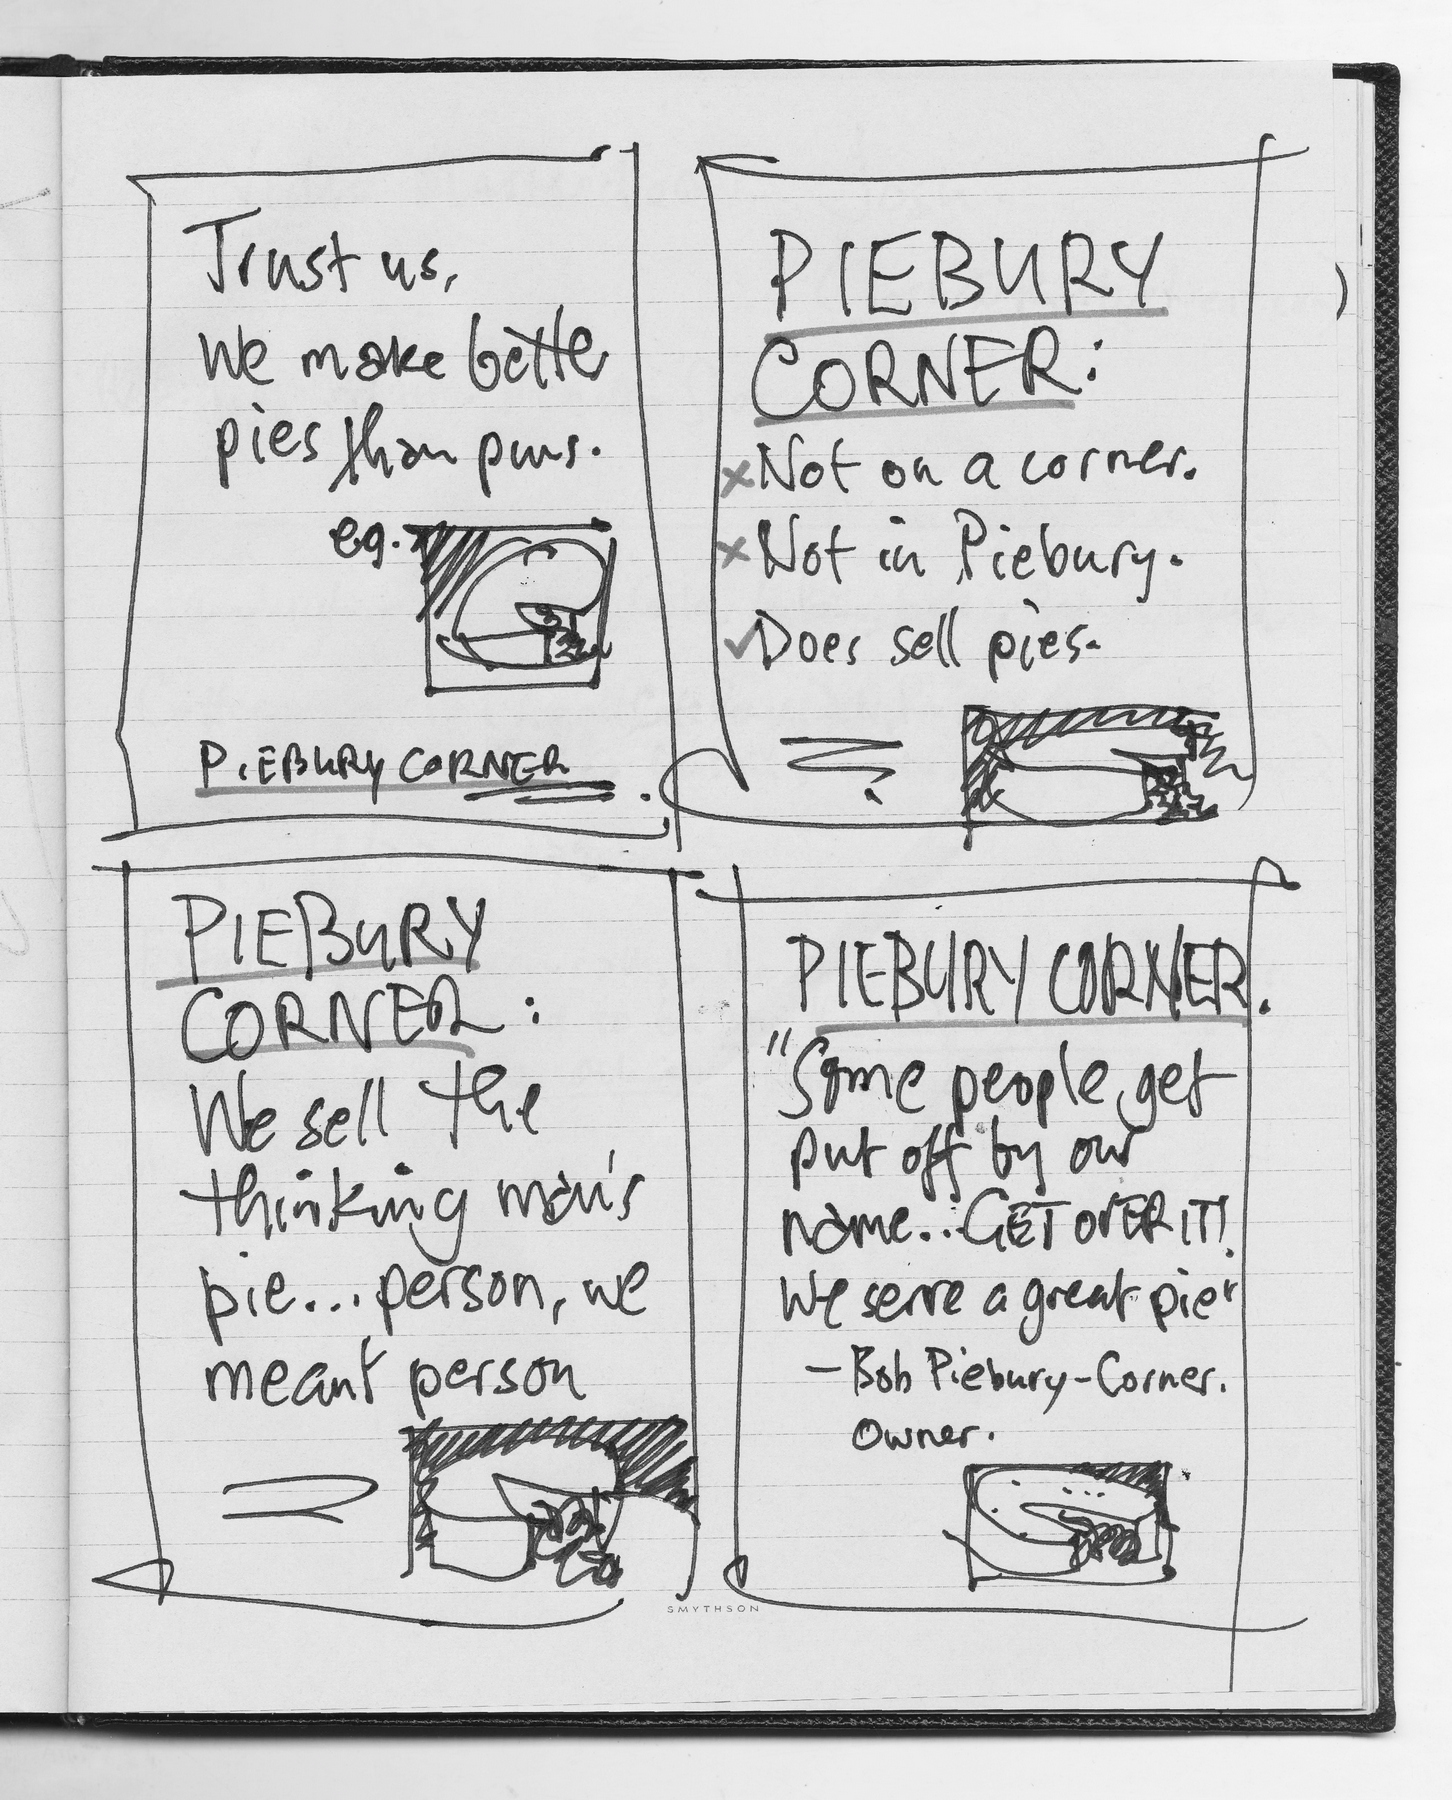 Trust us,
We make better
pies than puns.
eg.
PIEBURY CORNER
PIEBURY
CORNER:
Not on a corner.
Not in Piebury.
Does sell pies.
PIEBURY
CORNER:
We sell the
thinking man's
pie... person, we
meant person
PIEBURY CORNER.
"Some people get
put off by our
name... GET OVER IT!
We serve a great pie"
- Bob Piebury-Corner.
Owner.
SMYTHSON